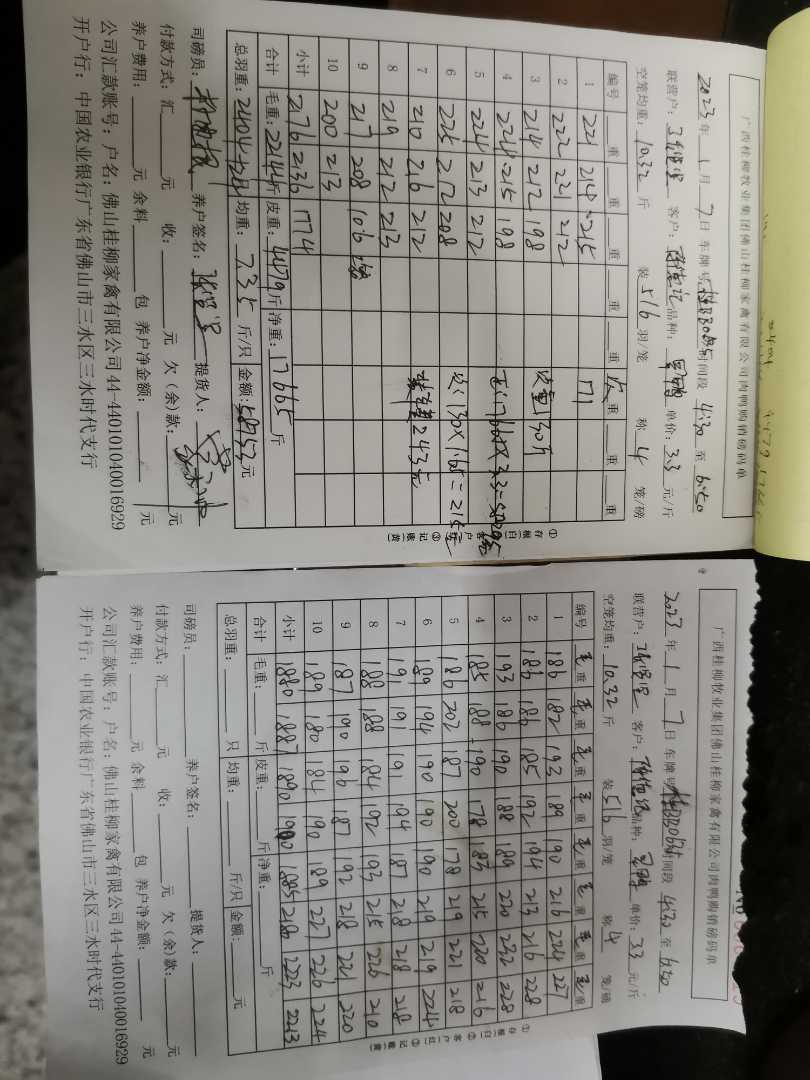 广西桂柳牧业集团佛山桂柳家禽有限公司肉鸭购销磅码单
2023年1月7日 车牌号 时间段 4:30 至 6:50
联营户: 客户: 品种: 单价: 3.3 元/斤
空笼均重: 10.32 斤 装 516 羽/笼 称 4 笼/磅
编号 重 重 重 重 重 欠重 重 重
1 221 214 215 171
2 222 221 212
3 214 212 198 欠重130斤
4 224 215 198
5 224 213 212
6 225 212 208 欠: 130×1.65=215元
7 216 216 212 243元
8 219 212 213
9 217 208 106
10 200 213
小计 2176 2136 1774
合计 毛重: 22144斤 皮重: 4479斤 净重: 17665斤
总羽重: 只 均重: 7.35 斤/只 金额: 元
司磅员: 养户签名: 提货人:
付款方式: 汇 元 收: 元 欠(余)款: 元
养户费用: 元 余料 包 养户净金额: 元
公司汇款账号: 户名: 佛山桂柳家禽有限公司 44-440101040016929
开户行: 中国农业银行广东省佛山市三水区三水时代支行
①存根(白) ③记账(黄)
广西桂柳牧业集团佛山桂柳家禽有限公司肉鸭购销磅码单
2023年1月7日 车牌号 时间段 4:30 至 6:50
联营户: 客户: 品种: 单价: 3.3 元/斤
空笼均重: 10.32 斤 装 516 羽/笼 称 4 笼/磅
编号 毛重 毛重 毛重 毛重 毛重 毛重 毛重 毛重
1 186 182 193 189 190 216 224 227
2 186 186 185 192 194 213 216 228
3 193 186 190 188 189 220 232 228
4 185 188 190 178 183 215 220 216
5 186 202 187 200 178 219 221 218
6 189 194 190 190 190 219 219 224
7 191 191 191 194 187 218 218 218
8 188 188 184 192 193 215 226 210
9 187 190 196 187 192 218 221 220
10 189 180 184 190 189 227 226 224
小计 1880 1887 1890 1900 1885 2180 2223 2213
合计 毛重: 斤 皮重: 斤 净重: 斤
总羽重: 只 均重: 斤/只 金额: 元
司磅员: 养户签名: 提货人:
付款方式: 汇 元 收: 元 欠(余)款: 元
养户费用: 元 余料 包 养户净金额: 元
公司汇款账号: 户名: 佛山桂柳家禽有限公司 44-440101040016929
开户行: 中国农业银行广东省佛山市三水区三水时代支行
①存根(白) ②客户(红) ③记账(黄)